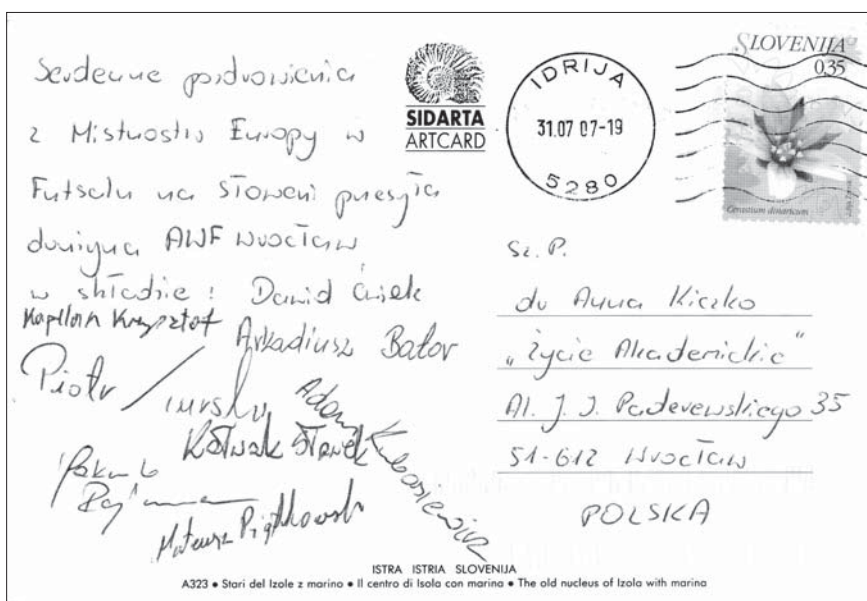 Serdeczne pozdrowienia
z Mistrzostw Europy w
Futsalu na Słoweni przesyła
drużyna AWF Wrocław
w składzie: Dawid Ćwiek
Kapitan Krzysztof
Arkadiusz Bator
Piotr
Kotwak Sławek
Adam
Jakub
Mateusz Piątkowski
SIDARTA
ARTCARD
IDRIJA
31.07 07-19
5280
SLOVENIJA
0,35
Cerastium dinaricum
Sz. P.
dr Anna Kiczko
„Życie Akademickie"
Al. J. J. Paderewskiego 35
51-612 Wrocław
POLSKA
ISTRA ISTRIA SLOVENIJA
A323 • Stari del Izole z marino • Il centro di Isola con marina • The old nucleus of Izola with marina